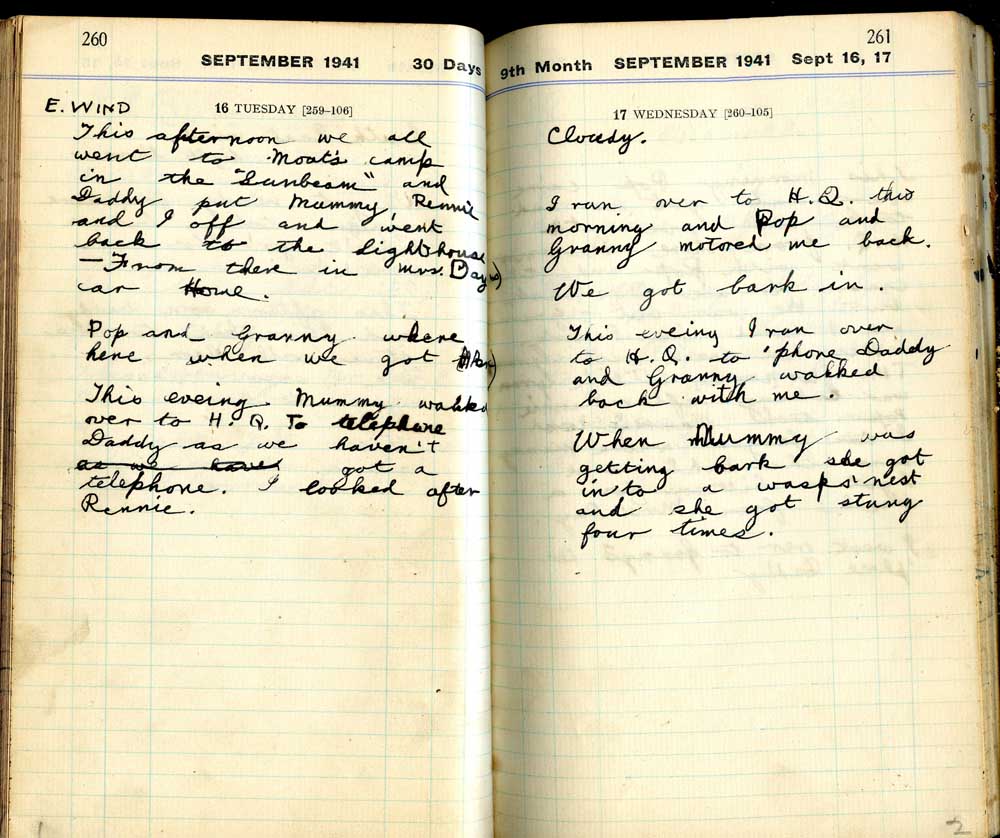 260
SEPTEMBER 1941 30 Days
E. WIND
16 TUESDAY [259–106]
This afternoon we all
went to Moat's camp
in the "Sunbeam" and
Daddy put Mummy, Rennie
and I off and went
back to the Lighthouse
— From there in Mrs. Day's
car Home.
Pop and Granny where
here when we got
This eveing Mummy walked
over to H. Q. To telephone
Daddy as we haven't
as we have got a
telephone. I looked after
Rennie.
261
9th Month SEPTEMBER 1941 Sept 16, 17
17 WEDNESDAY [260–105]
Cloudy.
I run over to H. Q. this
morning and Pop and
Granny motored me back.
We got bark in.
This eveing I ran over
to H. Q. to 'phone Daddy
and Granny walked
back with me.
When Mummy was
getting bark she got
in to a wasps' nest
and she got stung
four times.
2